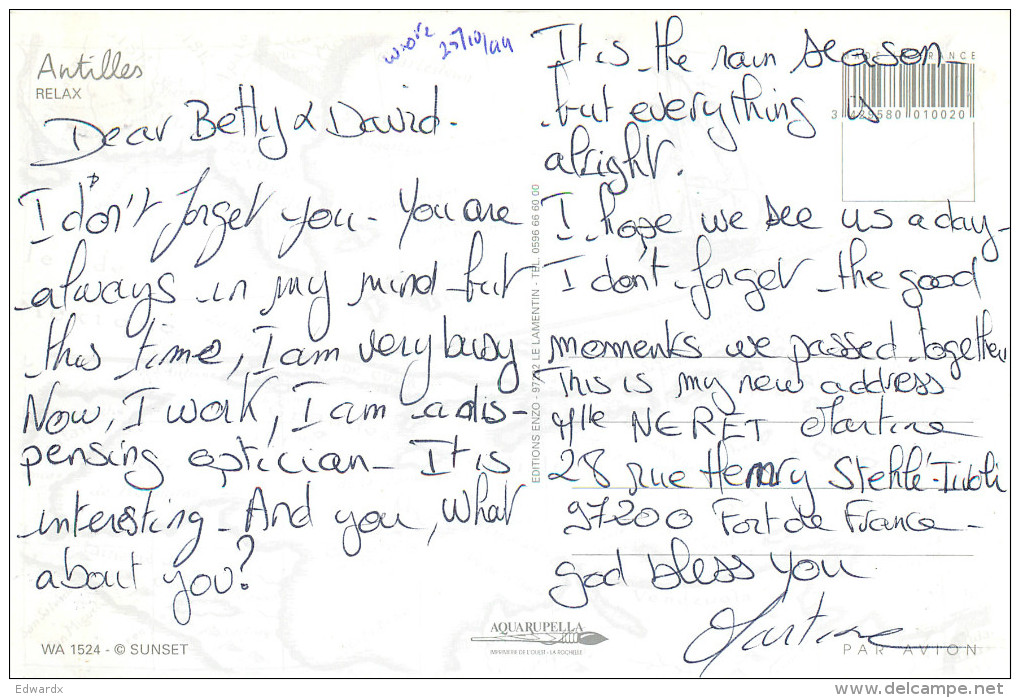 Antilles
RELAX
Dear Betty & David.
I don't forget you - You are
always in my mind but
this time, I am very busy
Now, I work, I am a dis-
pensing optician - It is
interesting - And you, what
about you?
WA 1524 - © SUNSET
wrote
25/10/99
EDITIONS ENZO - 97232 LE LAMENTIN - TEL. 0596 66 60 00
AQUARUPELLA
IMPRIMERIE DE L'OUEST - LA ROCHELLE
MADE IN FRANCE
3 425580 010020
It is the rain season -
but everything is
alright.
I hope we see us a day -
I don't forget the good
moments we passed together
This is my new address
Mlle NERET Martine
28 rue Henry Stehlé - Tivoli
97200 Fort de France -
god bless you
Martine
PAR AVION
Edwardx
delcampe.net